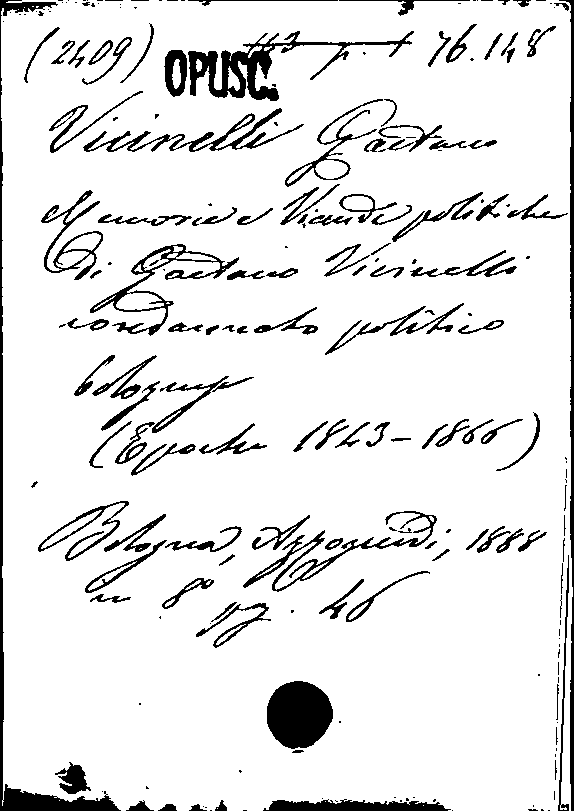 (2409) OPUSC. 76.148
Vicinelli Gaetano
Memorie e Vicende politiche
di Gaetano Vicinelli
condannato politico
bolognese
(Epoche 1843-1866)
Bologna, Azzoguidi, 1888
in 8° pg. 46